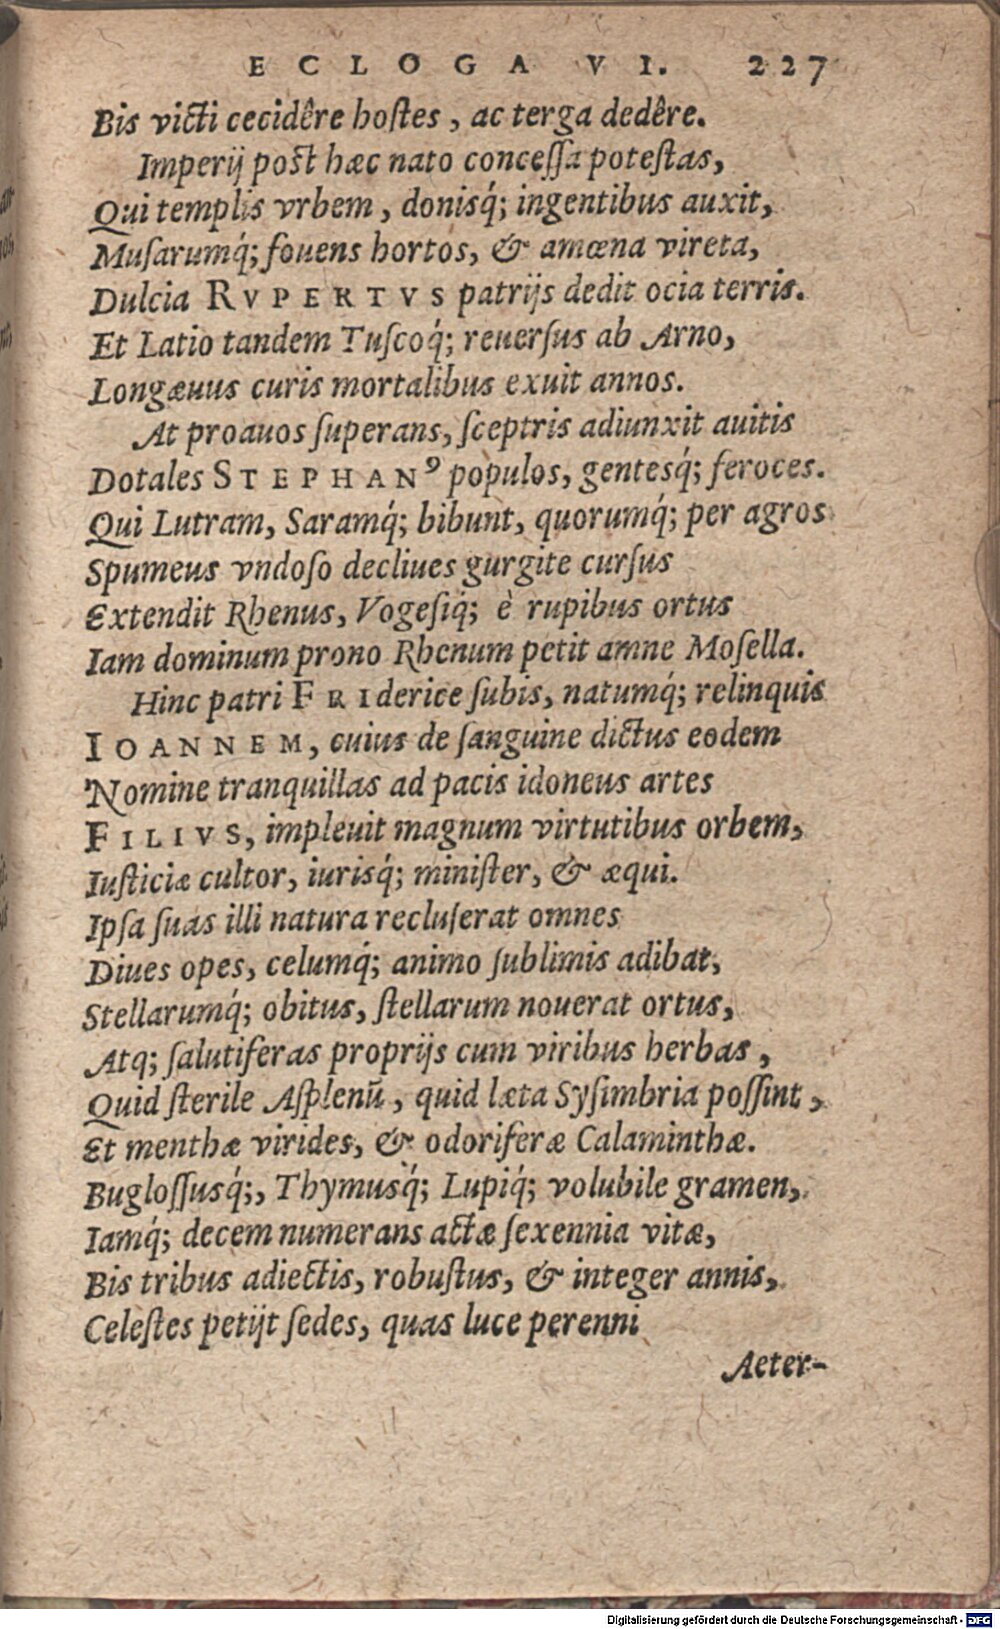 ECLOGA VI. 227
Bis victi cecidêre hoſtes, ac terga dedêre.
Imperij poſt hæc nato conceſſa poteſtas,
Qui templis vrbem, donisq́; ingentibus auxit,
Muſarumq́; fouens hortos, & amœna vireta,
Dulcia RVPERTVS patrijs dedit ocia terris.
Et Latio tandem Tuſcoq́; reuerſus ab Arno,
Longæuus curis mortalibus exuit annos.
At proauos ſuperans, ſceptris adiunxit auitis
Dotales STEPHANꝰ populos, gentesq́; feroces.
Qui Lutram, Saramq́; bibunt, quorumq́; per agros
Spumeus vndoſo decliues gurgite curſus
Extendit Rhenus, Vogeſiq́; è rupibus ortus
Iam dominum prono Rhenum petit amne Moſella.
Hinc patri FRIderice ſubis, natumq́; relinquis
IOANNEM, cuius de ſanguine dictus eodem
Nomine tranquillas ad pacis idoneus artes
FILIVS, impleuit magnum virtutibus orbem,
Iuſticiæ cultor, iurisq́; miniſter, & æqui.
Ipſa ſuas illi natura recluſerat omnes
Diues opes, celumq́; animo ſublimis adibat,
Stellarumq́; obitus, ſtellarum nouerat ortus,
Atq; ſalutiferas proprijs cum viribus herbas,
Quid ſterile Aſplenū, quid læta Syſimbria poſſint,
Et menthæ virides, & odoriferæ Calaminthæ.
Bugloſſusq́;, Thymusq́; Lupiq́; volubile gramen,
Iamq́; decem numerans actæ ſexennia vitæ,
Bis tribus adiectis, robuſtus, & integer annis,
Celeſtes petijt ſedes, quas luce perenni
Aeter-
Digitalisierung gefördert durch die Deutsche Forschungsgemeinschaft - DFG